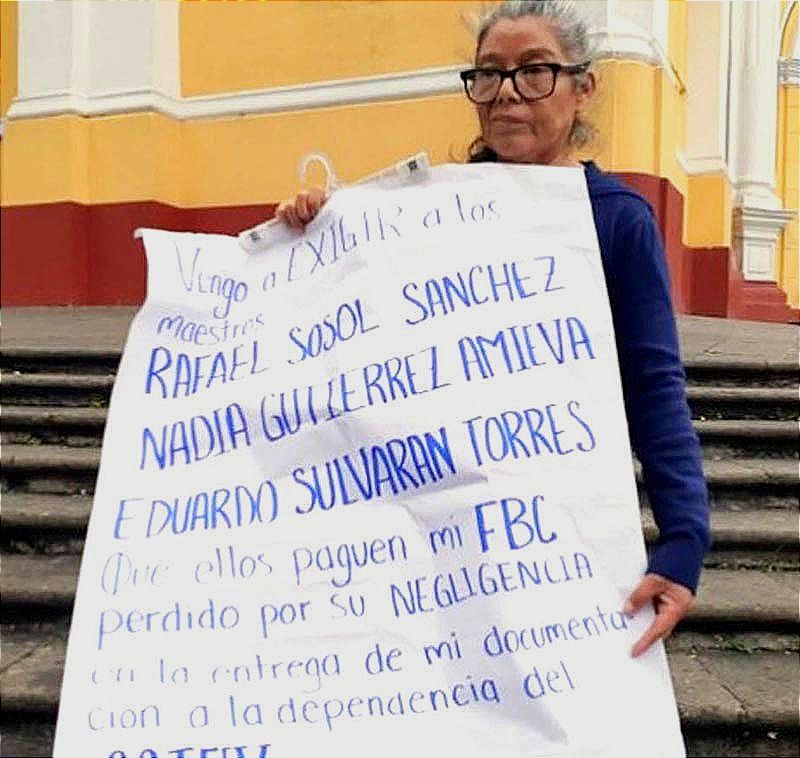 Vengo a EXIGIR a los
maestros
RAFAEL SOSOL SANCHEZ
NADIA GUTIERREZ AMIEVA
EDUARDO SULVARAN TORRES
Que ellos paguen mi FBC
perdido por su NEGLIGENCIA
en la entrega de mi documenta
cion a la dependencia del